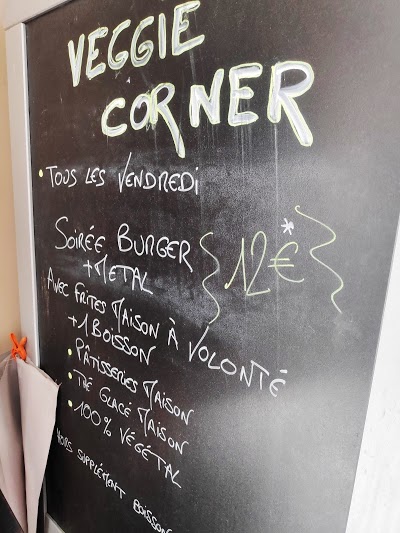 VEGGIE
CORNER
• TOUS LES VENDREDI
SOIRÉE BURGER
+ METAL
12€*
AVEC FRITES MAISON À VOLONTÉ
+ 1 BOISSON
• PÂTISSERIES MAISON
• THÉ GLACÉ MAISON
• 100% VÉGÉTAL
HORS SUPPLÉMENT BOISSON